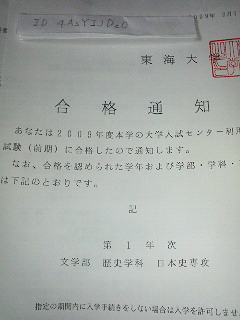 東海大
合格通知
あなたは2009年度本学の大学入試センター利用
試験（前期）に合格したので通知します。
なお、合格を認められた学年および学部・学科・
は下記のとおりです。
記
第1年次
文学部 歴史学科 日本史専攻
指定の期間内に入学手続きをしない場合は入学を許可しませ